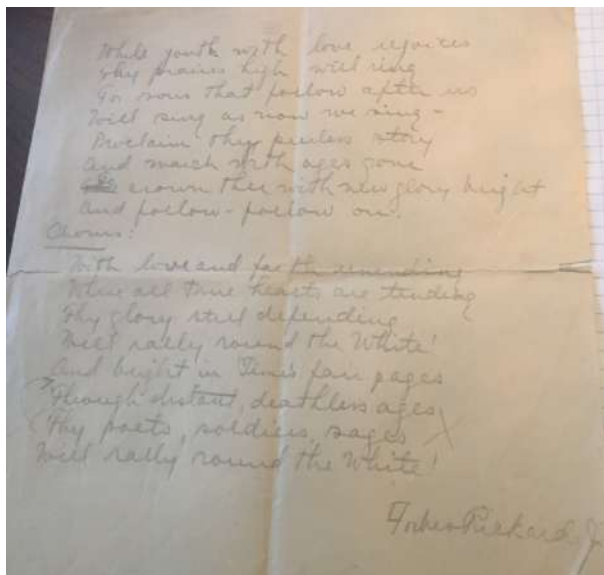 While youth with love rejoices
Thy praises high will ring
For sons that follow after us
Will sing as now we sing -
Proclaim thy peerless story
And march with ages gone
crown thee with new glory bright
And follow - follow on.
Chorus:
With love and faith unending
Where all true hearts are tending
Thy glory still defending
Will rally round the White!
And bright in Time's fair pages
Through distant, deathless ages
Thy poets, soldiers, sages
Will rally round the White!
Forbes Rickard, Jr